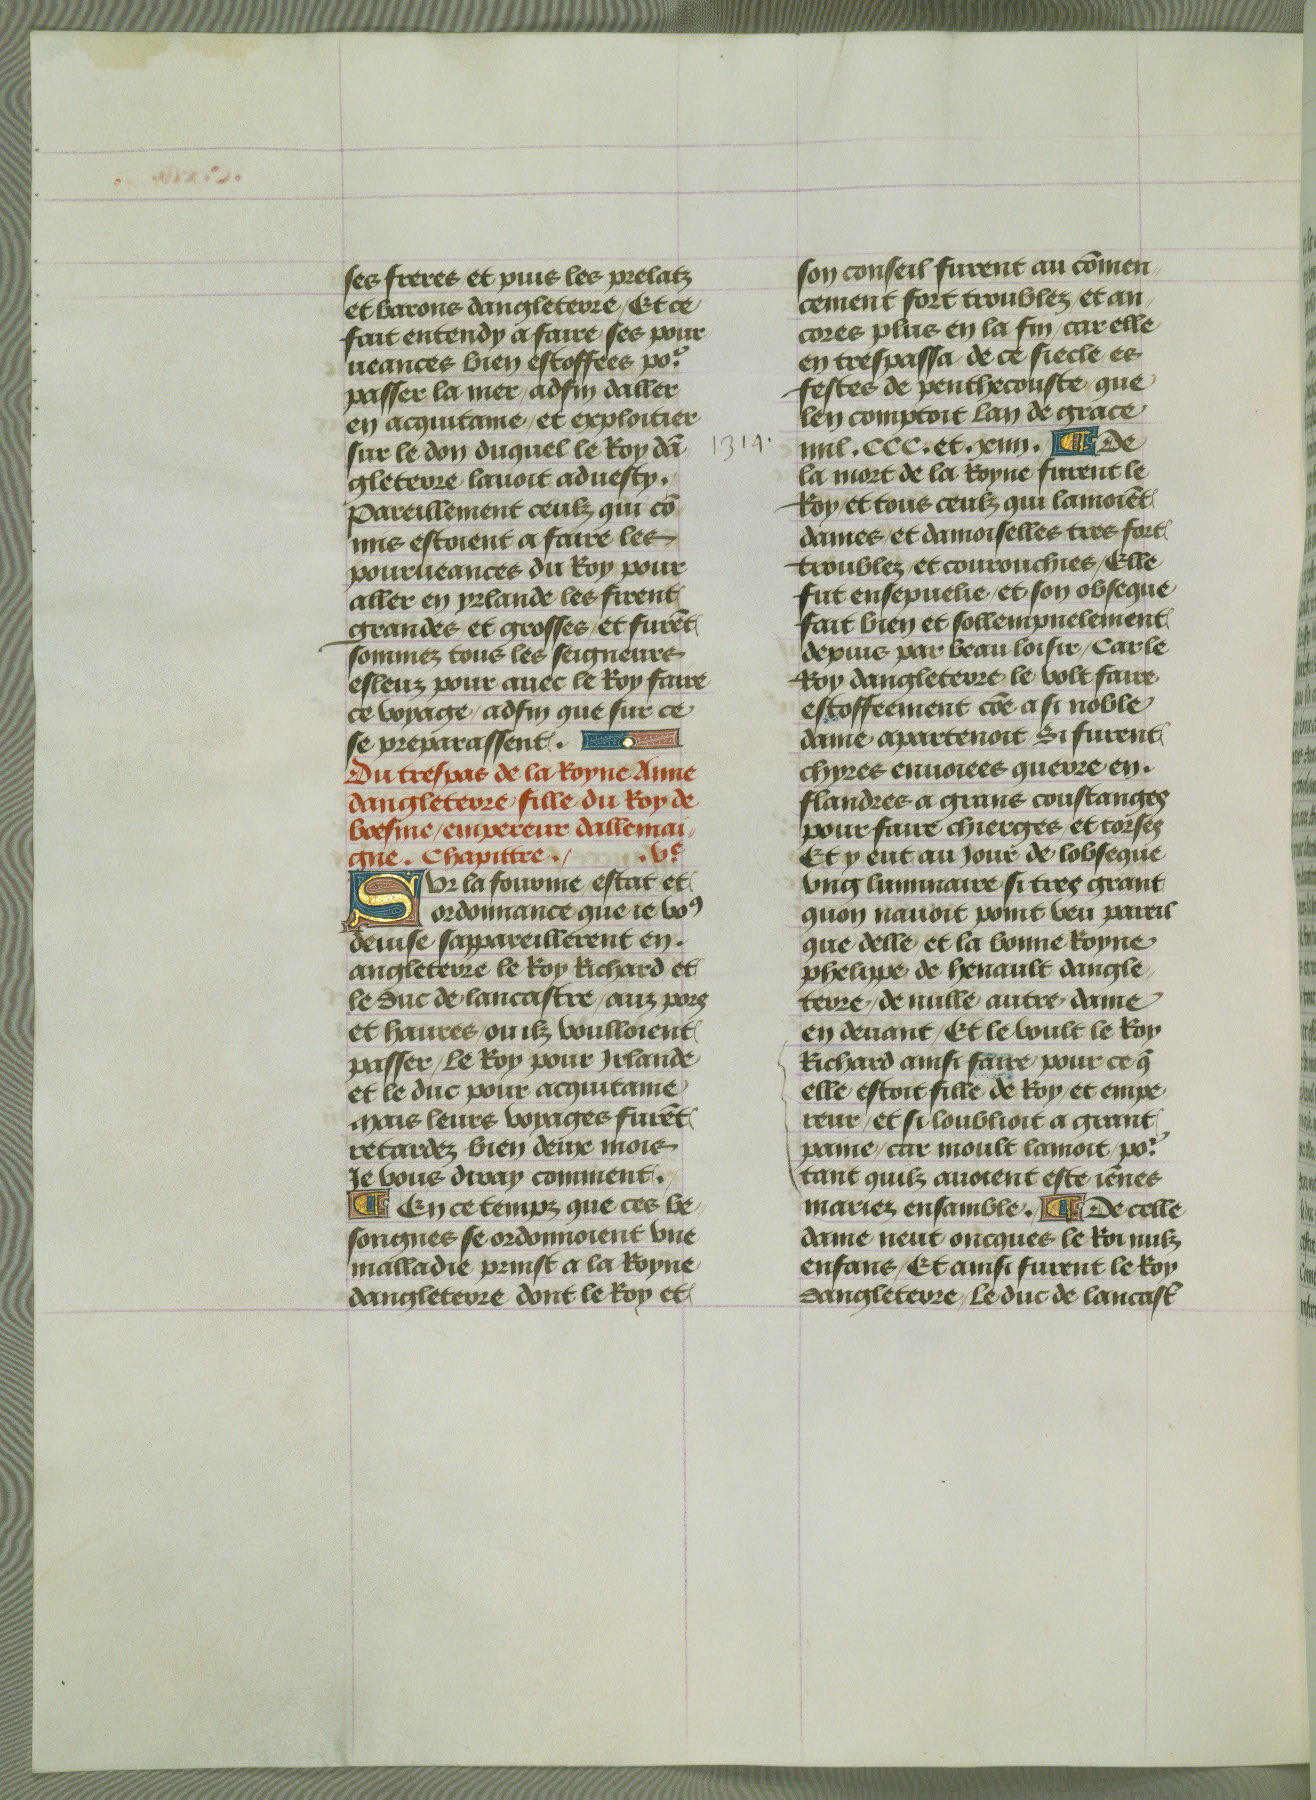 ses freres et puis les prelatz
et barons dangleterre / Et ce
fait entendy a faire ses pour
ueances bien estoffees poʳ
passer la mer / adfin daller
en acquitaine / et exploitier
sur le don duquel le Roy dā
gleterre lauoit aduesty.
Pareillement ceulz qui cō
mis estoient a faire les
pourueances du Roy pour
aller en yrlande les firent
grandes et grosses / et furēt
sommez tous les seigneurs
esleuz pour auec le Roy faire
ce voyage / adfin que sur ce
se preparassent.
Du trespas de la Royne Anne
dangleterre fille du Roy de
boesme / empereur dallemai
gne. Chapittre. / .vᵉ
SUr la fourme estat et
ordonnance que ie voꝰ
deuise sappareillerent en.
angleterre le Roy Richard et
le duc de lancastre / auz pors
et haures / ou ilz voulloient
passer / Le Roy pour Irlande
et le duc pour acquitaine
Mais leurs voyages furēt
retardez bien deux mois
Je vous diray comment.
¶ En ce temps que ces be
songnes se ordonnoient vne
malladie prinst a la Royne
dangleterre dont le Roy et
son conseil furent au cōmen
cement fort troublez / et an
cores plus en la fin / car elle
en trespassa de ce siecle es
festes de penthecouste que
len comptoit Lan de grace
1314.
mil. CCC. et. xiiii. ¶ De
la mort de la Royne furent le
Roy / et tous ceulz qui lamoiēt
dames / et damoiselles tres fort
troublez / et courouchies / Elle
fut ensepuelie / et son obseque
fait bien et sollempnelement
depuis par beau loisir / Car le
Roy dangleterre le volt faire
estoffeement cōe a si noble
dame apartenoit Si furent
chyres enuoiees querre en.
flandres a grans coustanges
pour faire chierges / et torses
Et y eut au jour de lobseque
vng luminaire si tres grant
quon nauoit point veu pareil
que delle et la bonne Royne
phelippe de henault dangle
terre / de nulle autre dame
en deuant / Et le voult le Roy
Richard ainsi faire pour ce q̄
elle estoit fille de Roy / et empe
reur / et si loublioit a grant
paine / car moult lamoit / poʳ
tant quilz auoient este iēnes
mariez ensamble. ¶ De celle
dame neut oncques le Roi nulz
enfans / Et ainsi furent le Roy
dangleterre / Le duc de lancast̄